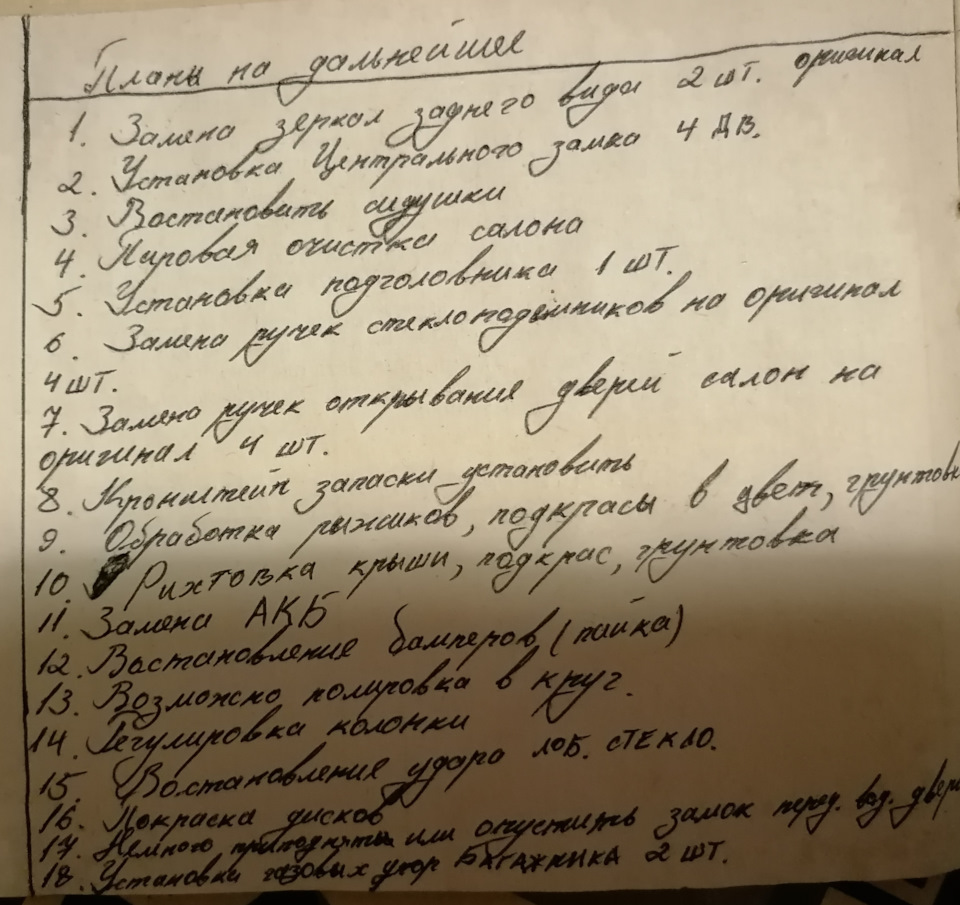 Планы на дальнейшее
1. Замена зеркал заднего вида 2 шт. оригинал
2. Установка Центрального замка 4 дв.
3. Востановить сидушки
4. Паровая очистка салона
5. Установка подголовника 1 шт.
6. Замена ручек стеклоподёмников на оригинал
4 шт.
7. Замена ручек открывания дверей салон на
оригинал 4 шт.
8. Кронштейн запаски установить
9. Обработка рыжиков, подкрасы в цвет, грунтовк
10. Рихтовка крыши, подкрас, грунтовка
11. Замена АКБ
12. Востановление бамперов (пайка)
13. Возможно полировка в круг.
14. Регулировка колонки
15. Востановление удара лоб. стекло.
16. Покраска дисков
17. Немного приподнять или опустить замок перед. вод. двери
18. Установка газовых упор багажника 2 шт.